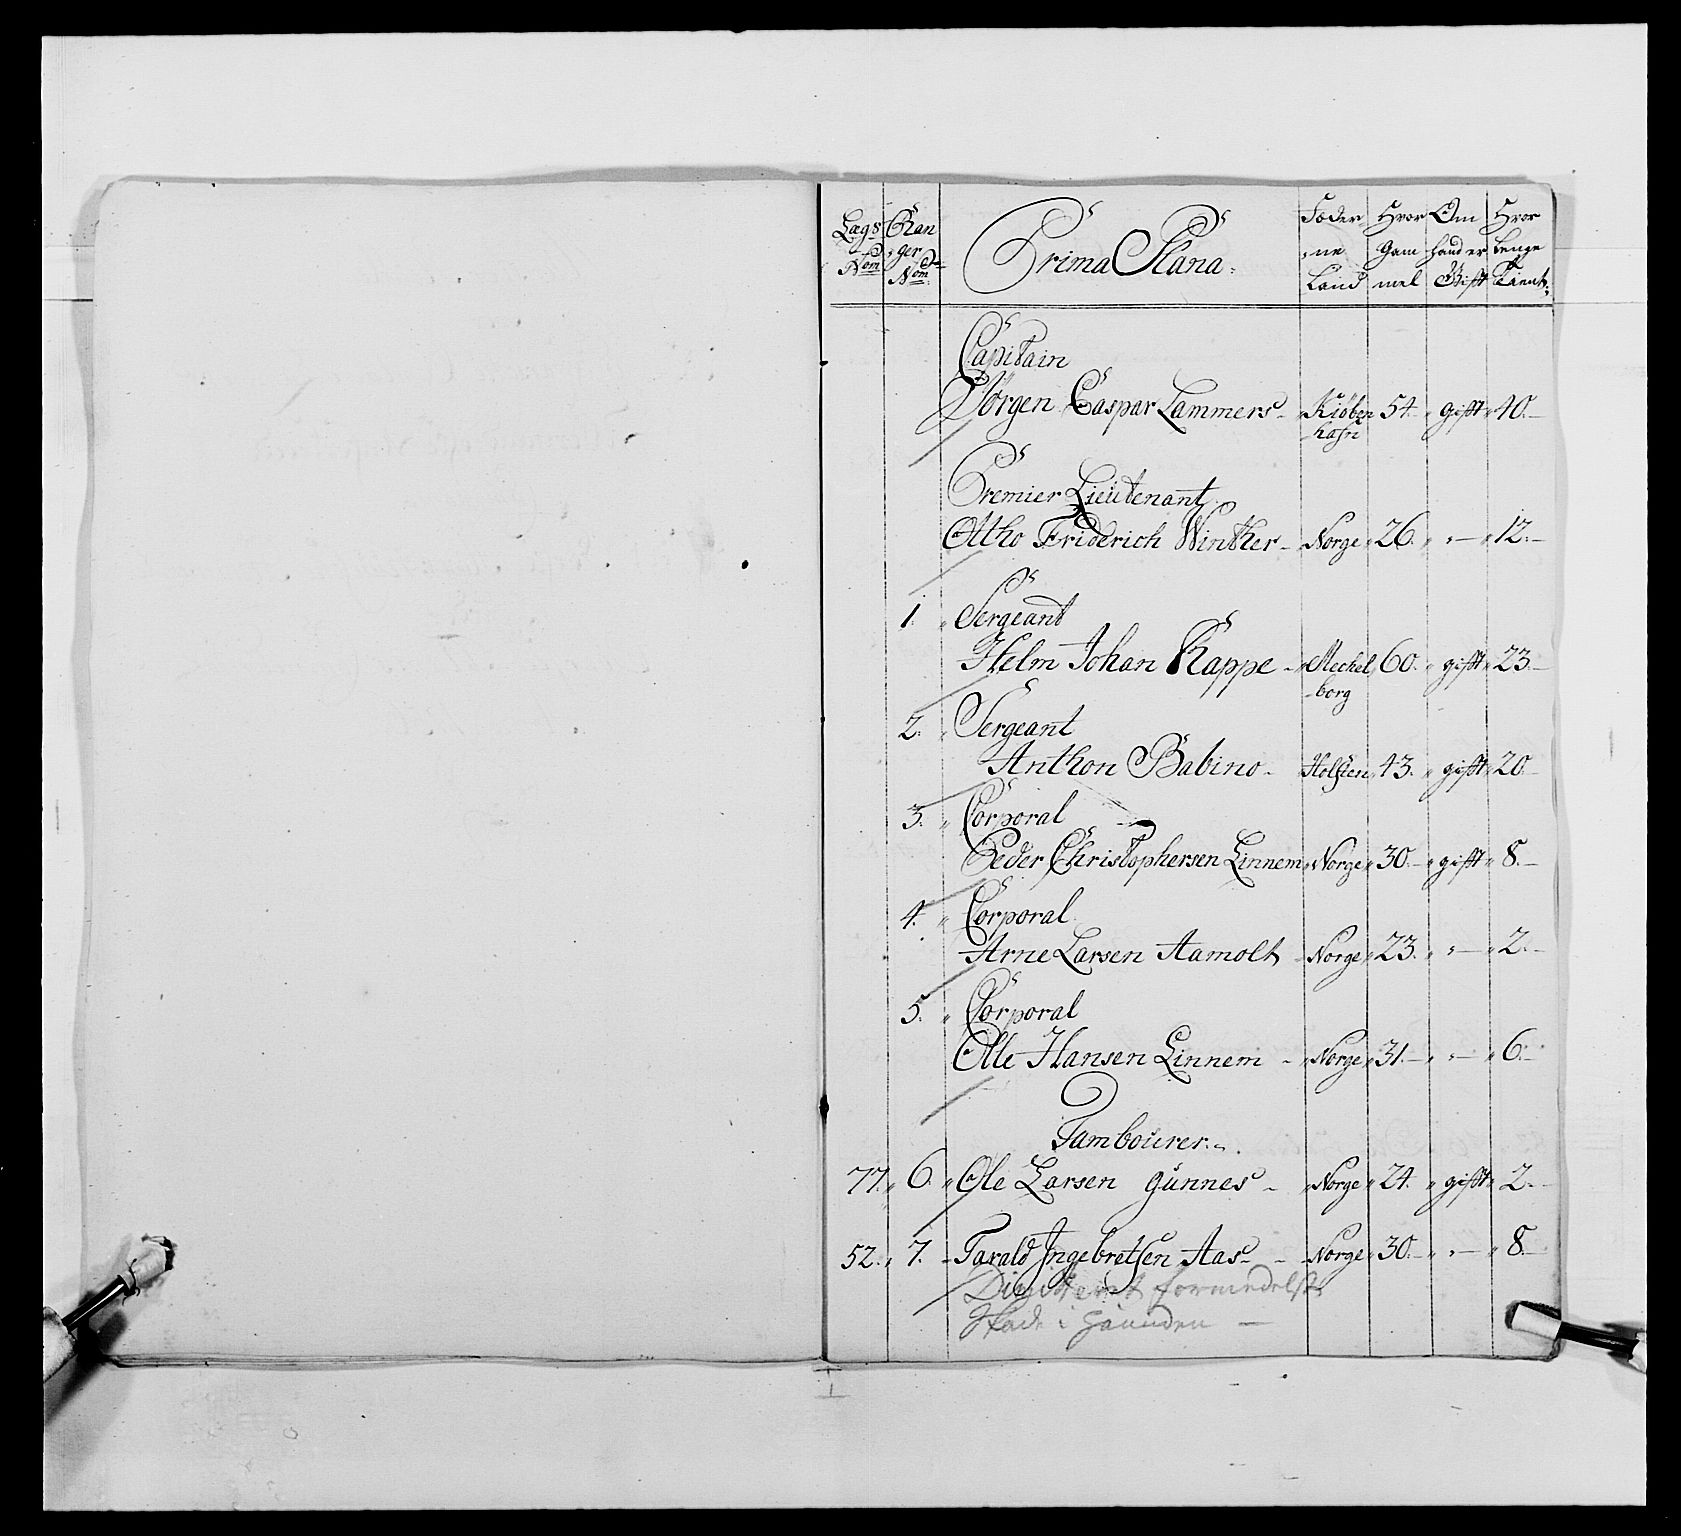 Lægs Nom | Ran,ger Nom | Prima Plana | Föder,ne Land | Hvor Gammel | Om hand er Gift | Hvor lenge Tient
Capitain
Jörgen Caspar Lammers | Kiöben hafn | 54 | gift | 40
Premier Lieutenant
Ottho Friderich Winther | Norge | 26 | - | 12
1. Sergeant
Helm Johan Kappe | Mechel borg | 60 | gift | 23
2. Sergeant
Anthon Babino | Holsten | 43 | gift | 20
3. Corporal
Peder Christophersen Linnem | Norge | 30 | gift | 8
4. Corporal
Arne Larsen Aamolt | Norge | 23 | - | 2
5. Corporal
Olle Hansen Linnem | Norge | 31 | - | 6
Tambourer
77 | 6. | Ole Larsen Gunnes | Norge | 24 | gift | 2
52 | 7. | Tarald Jngebretsen Aas | Norge | 30 | - | 8
formedelst
Skade i Haanden